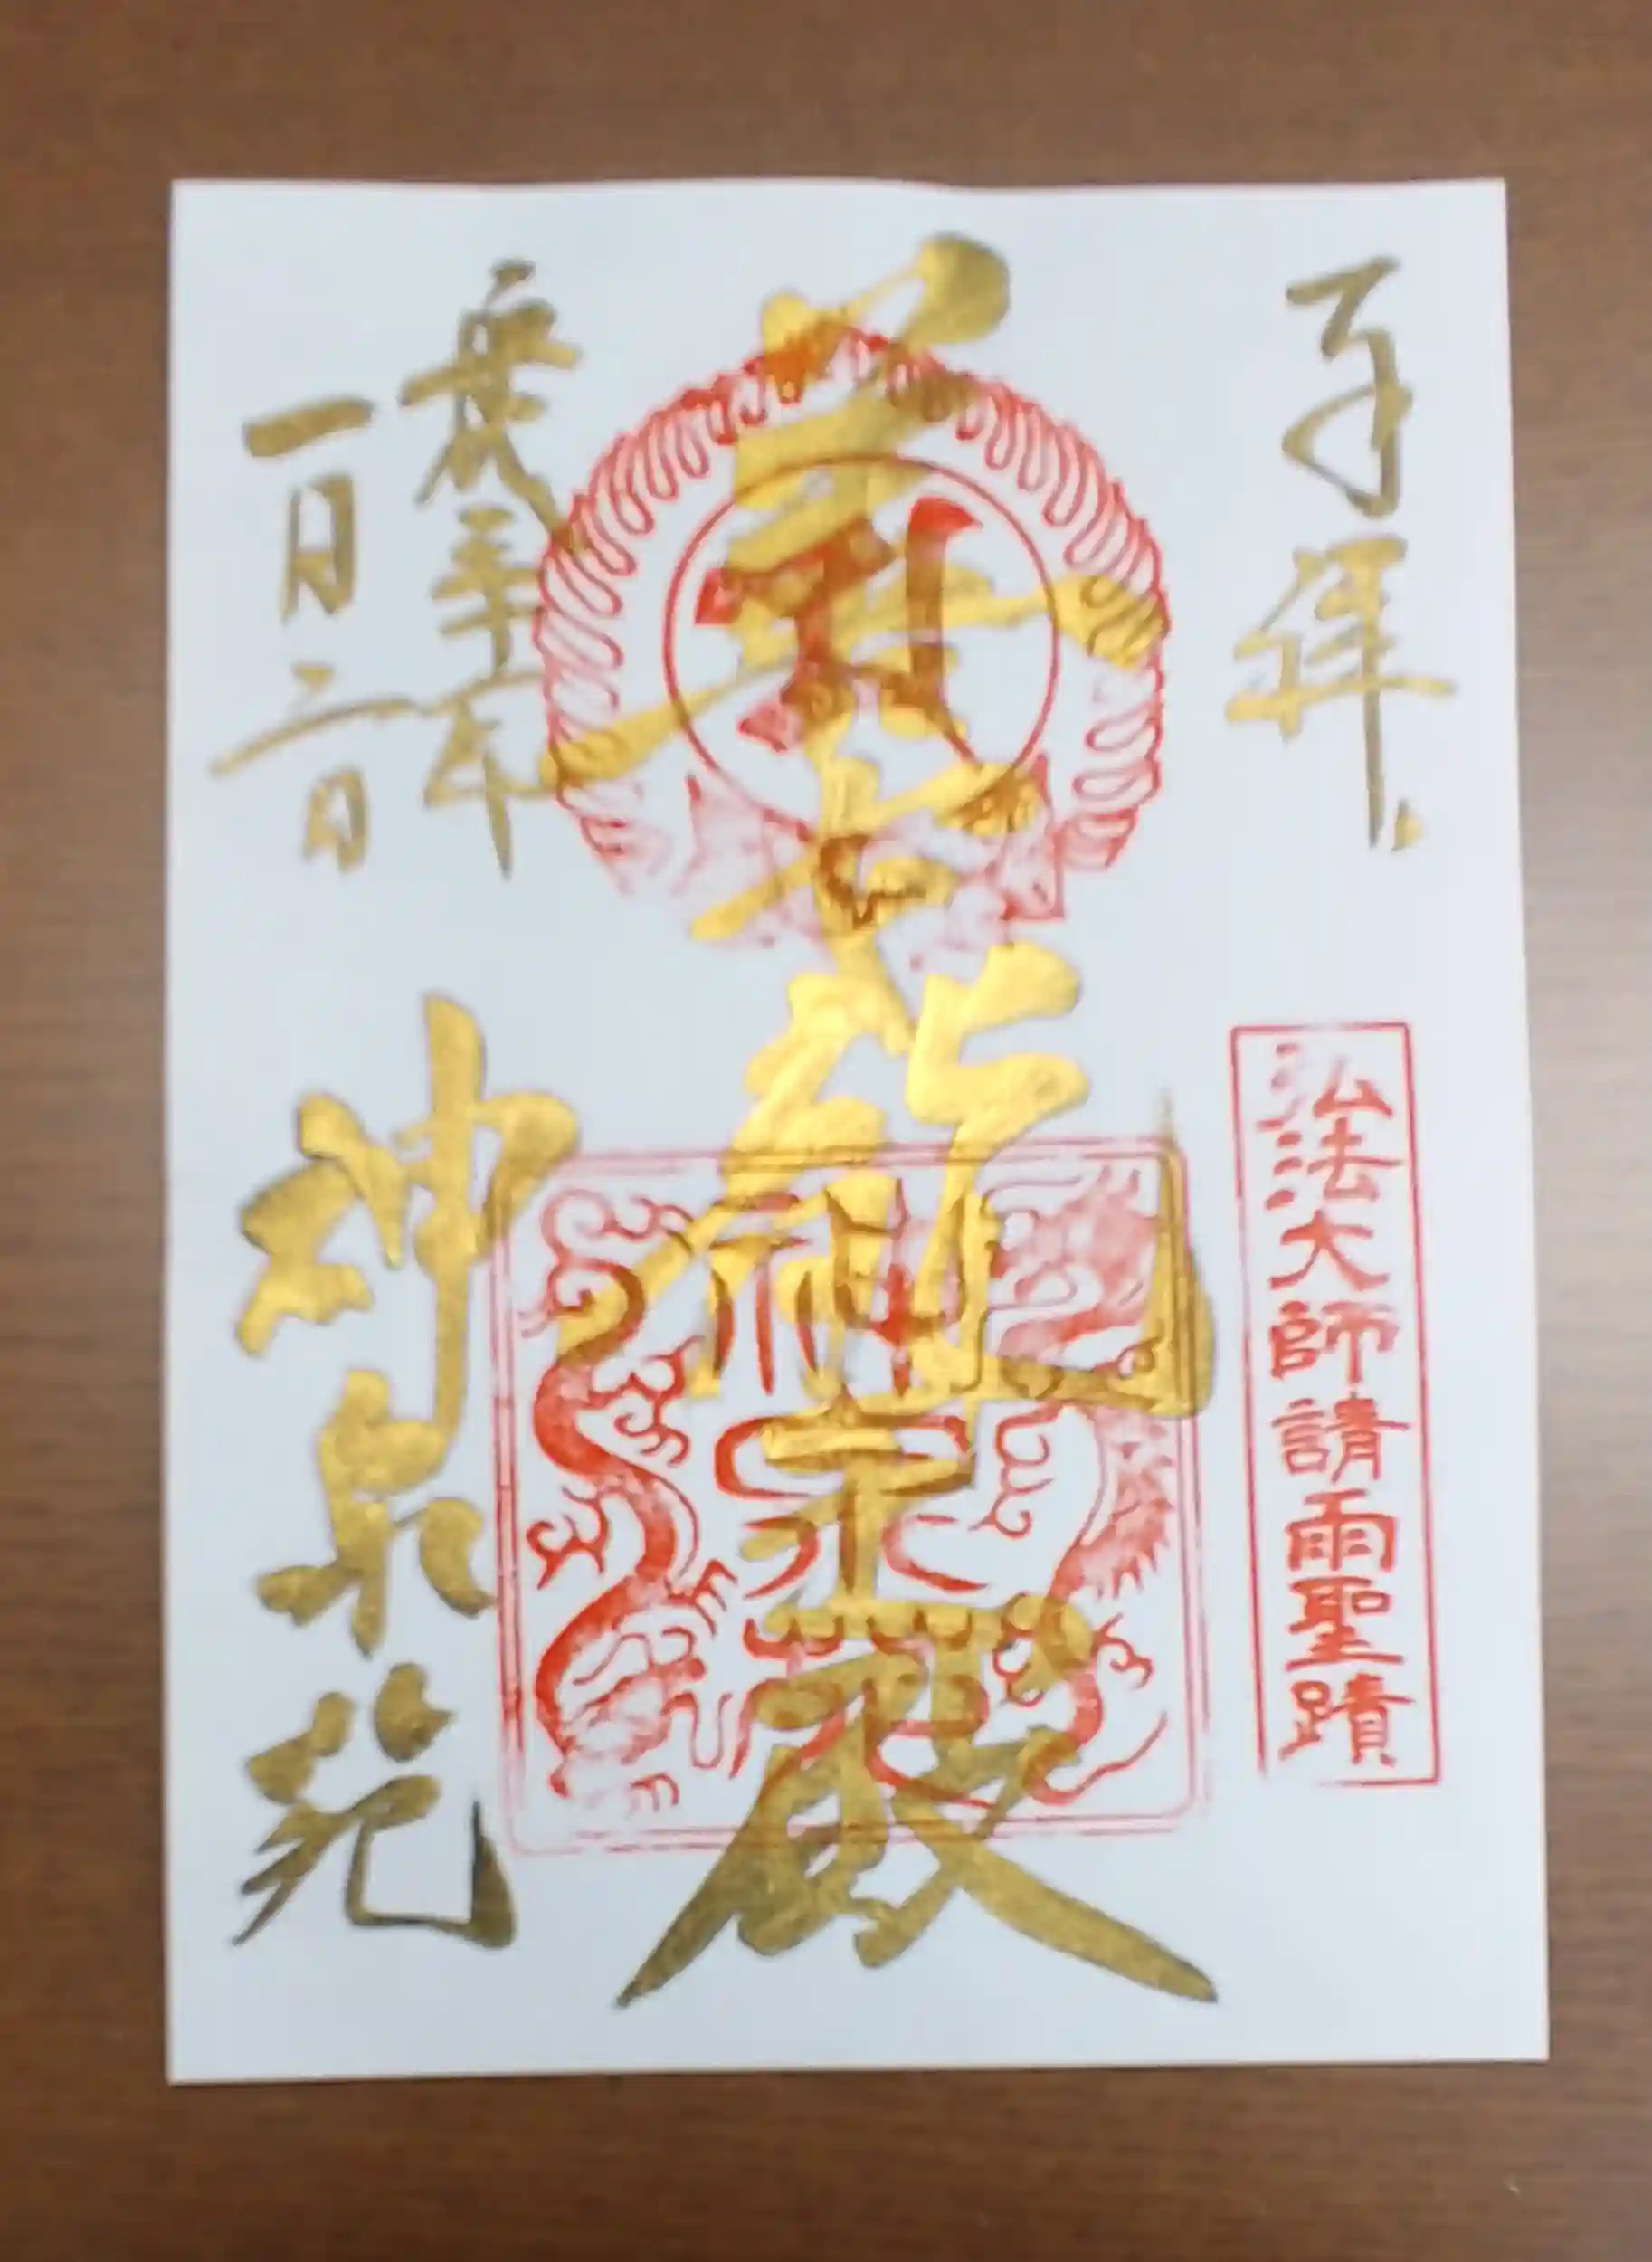 奉拝
弘法大師請雨聖蹟
善女龍王殿
神泉苑
一月二日
神泉苑